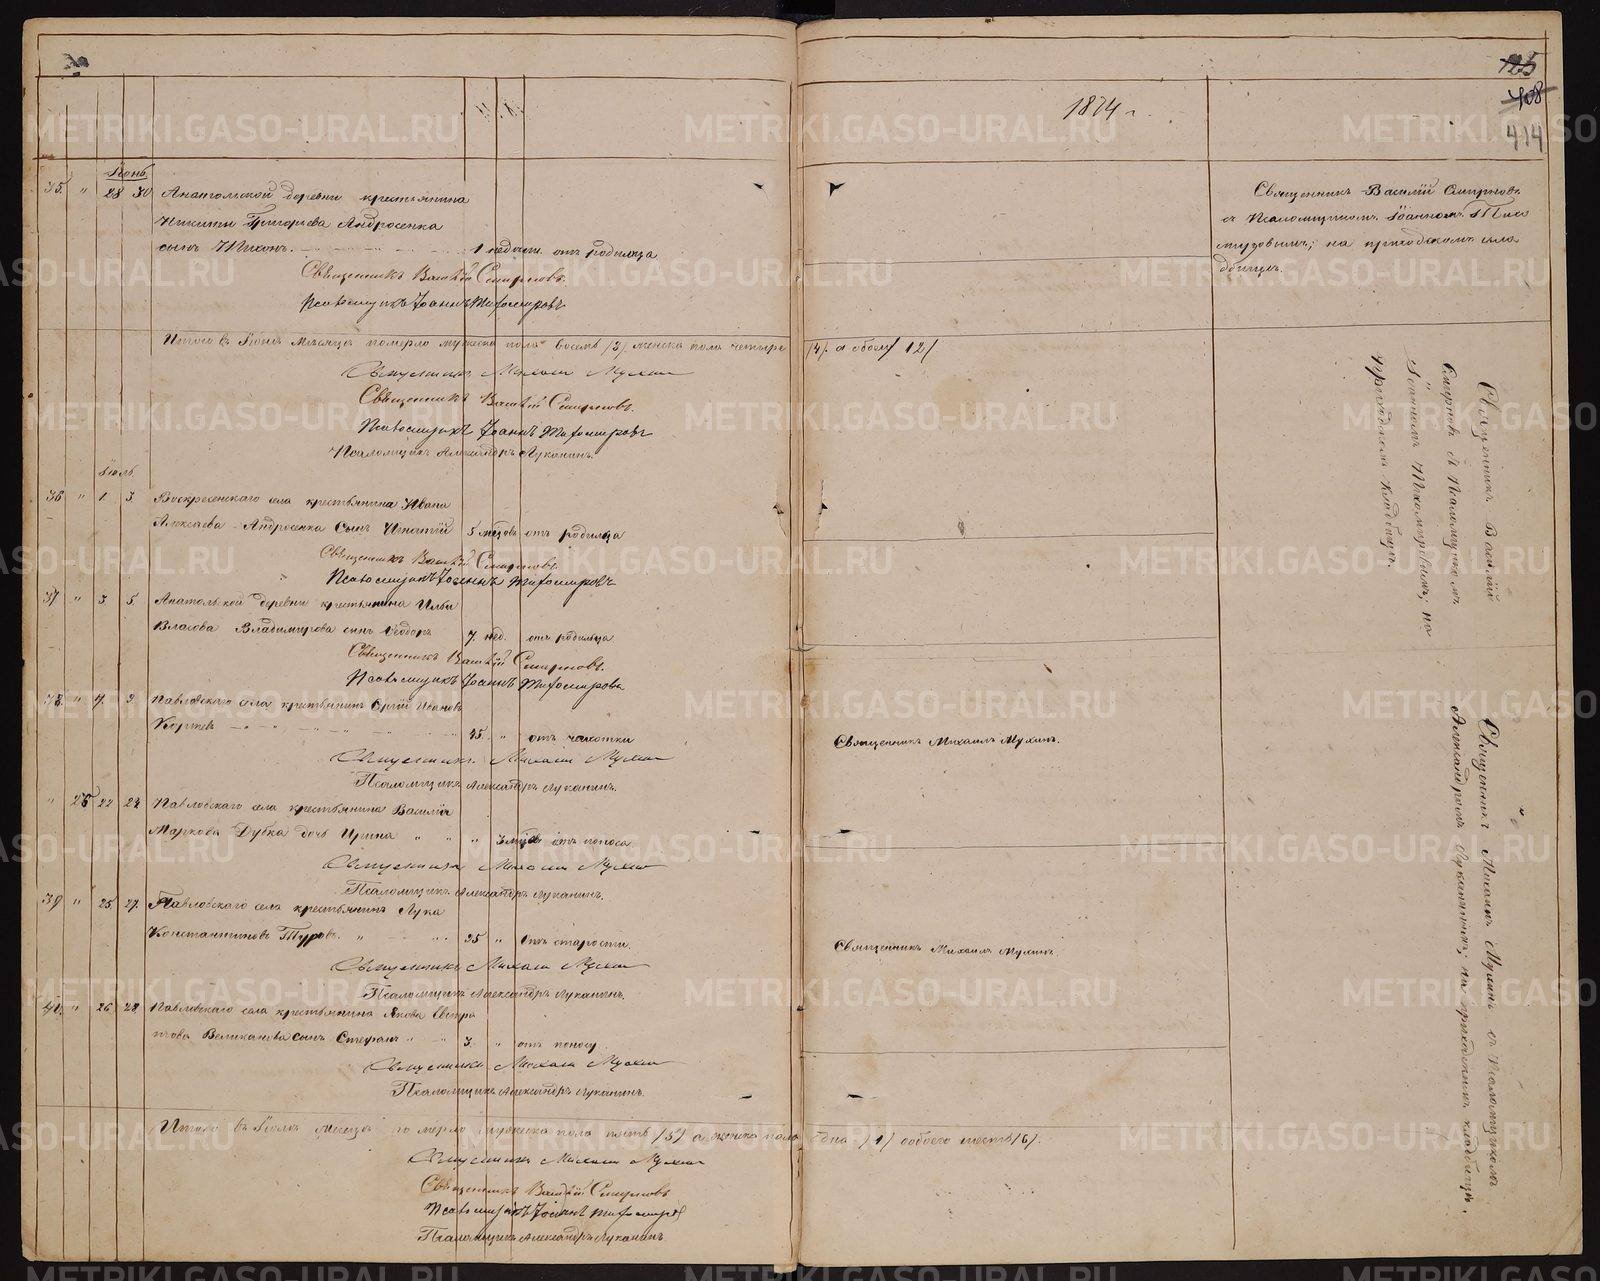 125
408
414
1874 г.
Іюнь
35. " 28 30 Анатольской деревни крестьянина
Никиты Григорьева Андросенка
сынъ Тихонъ. 1 недѣли. отъ родимца
Священникъ Василій Смирновъ.
Псаломщикъ Іоаннъ Тихомировъ
Священникъ Василій Смирновъ
съ Псаломщикомъ Іоанномъ Тихо
мировымъ; на приходскомъ кла
дбищѣ.
Итого въ Іюнѣ мѣсяцѣ померло мужеска пола восемь /8/. женска пола четыре /4/. а обоего /12/
Священникъ Михаилъ Мухинъ
Священникъ Василій Смирновъ.
Псаломщикъ Іоаннъ Тихомировъ
Псаломщикъ Александръ Луканинъ.
Іюль.
36 " 1 3. Воскресенскаго села крестьянина Ивана
Алексѣева Андросенка сынъ Игнатій 5 мѣсцовъ отъ родимца
Священникъ Василій Смирновъ.
Псаломщикъ Іоаннъ Тихомировъ
37 " 3. 5. Анатольской деревни крестьянина Ильи
Власова Владимирова сынъ Ѳеодоръ 7. нед. отъ родимца
Священникъ Василій Смирновъ.
Псаломщикъ Іоаннъ Тихомировъ
Священникъ Василій
Смирновъ съ Псаломщикомъ
Іоанномъ Тихомировымъ; на
приходскомъ кладбищѣ.
38. " 7. 9. Павловскаго села крестьянинъ Сергій Ивановъ
Коржевъ 45. " отъ чахотки
Священникъ Михаилъ Мухинъ.
Священникъ Михаилъ Мухинъ
Псаломщикъ Александръ Луканинъ.
" 26 22 24 Павловскаго села крестьянина Василія
Маркова Дубка дочь Ирина " " " 3 мѣс. отъ поноса
Священникъ Михаилъ Мухинъ
Псаломщикъ Александръ Луканинъ.
39 " 25. 27. Павловскаго села крестьянинъ Лука
Константиновъ Туровъ. " 95 " Отъ старости.
Священникъ Михаилъ Мухинъ.
Священникъ Михаилъ Мухинъ
Псаломщикъ Александръ Луканинъ.
40. " 26 28. Павловскаго села крестьянина Якова
Великанова сынъ Стефанъ " " 3. " отъ поносу
Священникъ Михаилъ Мухинъ
Псаломщикъ Александръ Луканинъ.
Священникъ Михаилъ Мухинъ съ Псаломщикомъ
Александромъ Луканинымъ; на приходскомъ кладбищѣ.
Итого въ Іюлѣ мѣсяцѣ померло мужеска пола пять /5/ а женска пола одна /1/ обоего шесть /6/.
Священникъ Михаилъ Мухинъ
Священникъ Василій Смирновъ
Псаломщикъ Іоаннъ Тихомировъ
Псаломщикъ Александръ Луканинъ
METRIKI.GASO-URAL.RU